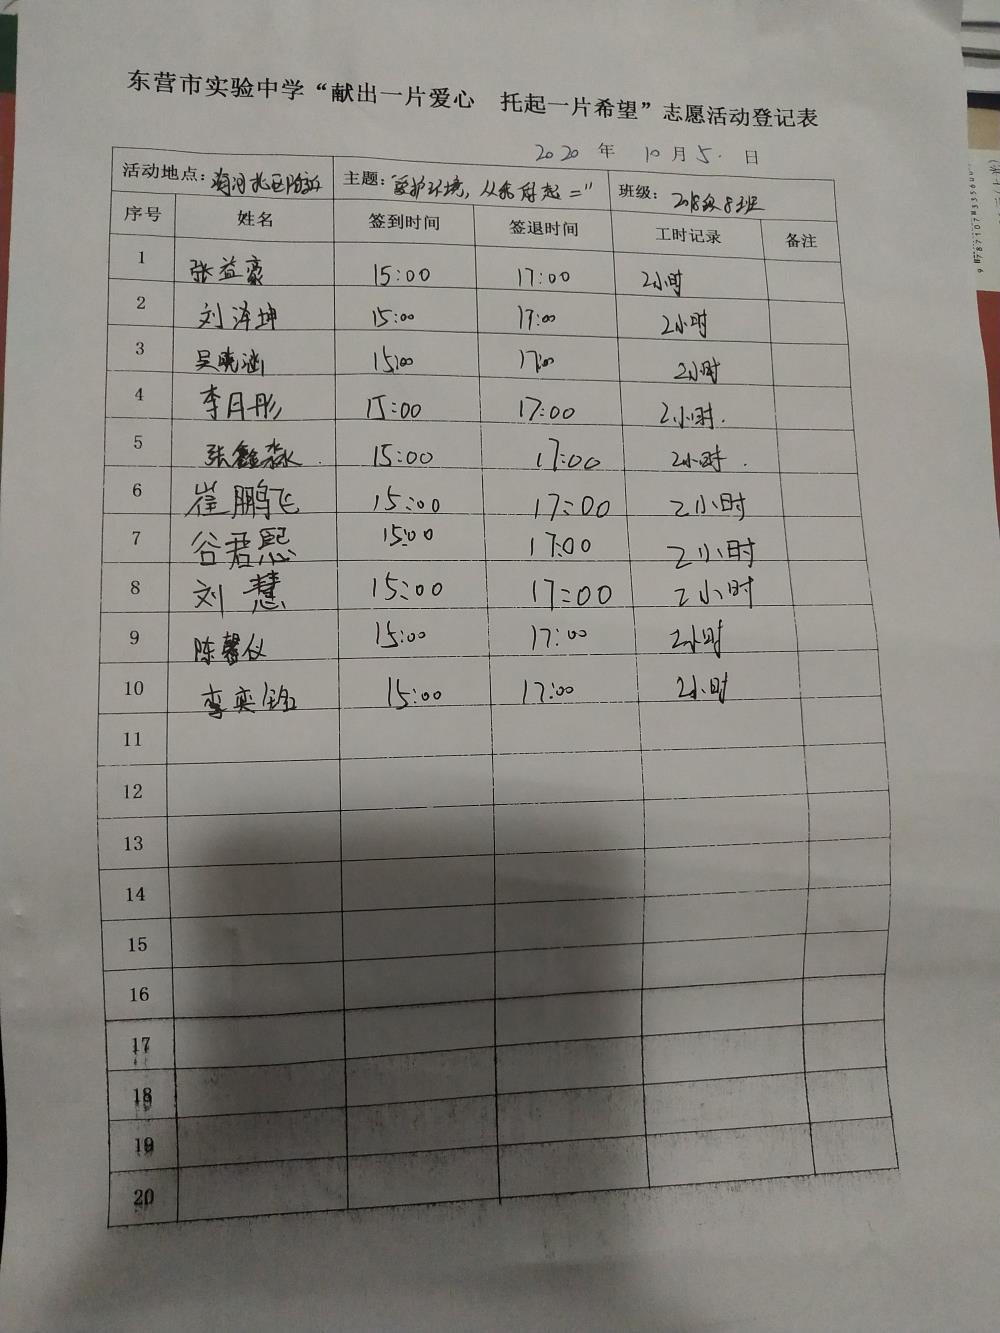 东营市实验中学“献出一片爱心 托起一片希望”志愿活动登记表
2020 年 10 月 5. 日
活动地点： 主题：爱护环境，从我身起 班级：2018级8班
序号 姓名 签到时间 签退时间 工时记录 备注
1 张益豪 15:00 17:00 2小时
2 刘泽坤 15:00 17:00 2小时
3 吴晓涵 15:00 17:00 2小时
4 李月彤 15:00 17:00 2小时.
5 张鑫淼 15:00 17:00 2小时.
6 崔鹏飞 15:00 17:00 2小时
7 谷君熙 15:00 17:00 2小时
8 刘慧 15:00 17:00 2小时
9 陈馨仪 15:00 17:00 2小时
10 李奕铭 15:00 17:00 2小时
11
12
13
14
15
16
17
18
19
20